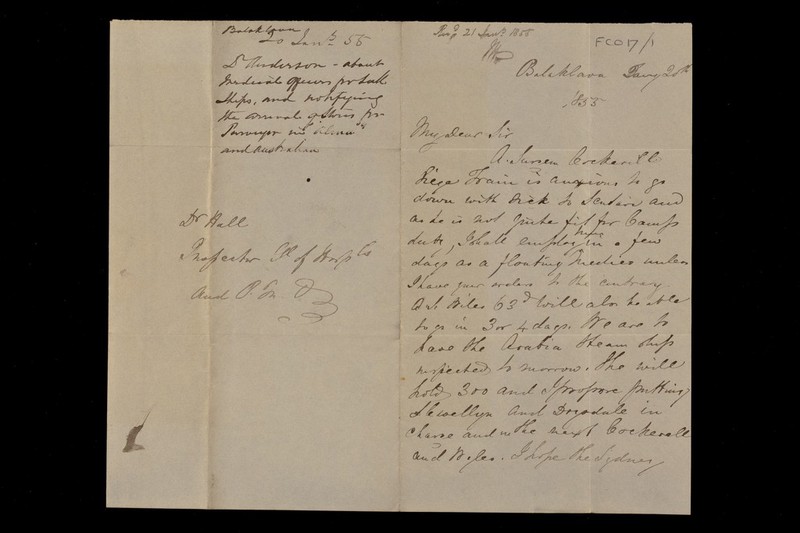 Balaklava
20 Jany 55
Dr Anderson - about
Medical Officers for Sick
Ships, and notifying
the arrival of Stores for
Purveyor in
and Australian
Dr Hall
Inspector Gl of Hospls
and P. M. O
21 Jany 1855
FCO 17/1
Balaklava Jany 20th
1855
My dear Sir
A. Surgeon Cockerill
Siege Train is anxious to go
down with sick to Scutari and
as he is not quite fit for Camp
duty, I shall employ him in a few
days as a floating Medico unless
I have your orders to the contrary.
A. S. Biles 63d will also be able
to go in 3 or 4 days. We are to
have the Arabia Steam Ship
inspected to morrow. She will
hold 300 and I propose putting
Llewellyn and Drysdale in
charge and in the next Cockerell
and Biles. I hope the Sydney